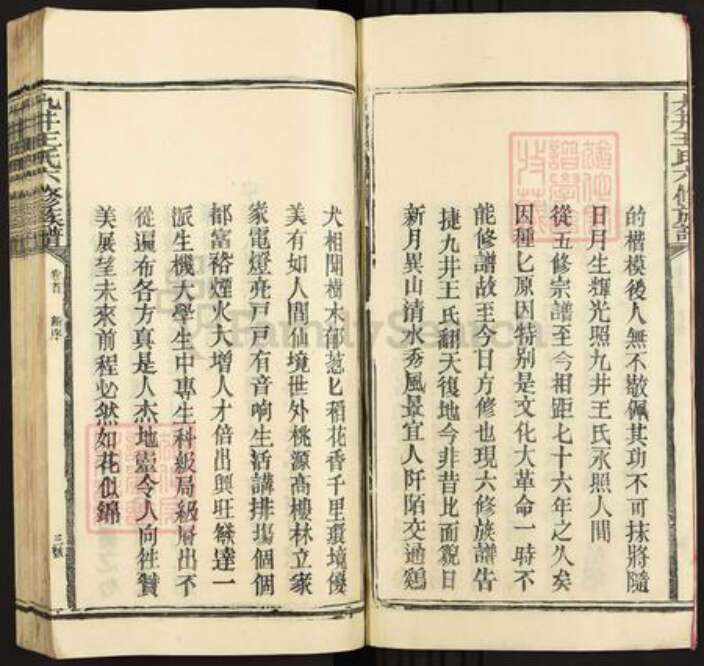 九井王氏六修族譜
的楷模後人無不敬佩其功不可抹將隨
日月生輝光照九井王氏永照人間
從五修宗譜至今相距七十六年之久矣
因種匕原因特别是文化大革命一時不
能修譜故至今日方修也現六修族譜告
捷九井王氏翻天復地今非昔比面貌日
新月異山清水秀風景宜人阡陌交通鷄
犬相聞樹木郁葱匕稻花香千里環境優
美有如人間仙境世外桃源高樓林立家
家電燈亮戸戸有音响生活講排塲個個
都富裕煙火大增人才倍出興旺發達一
派生機大學生中專生科級局級層出不
從遍布各方真是人杰地靈令人向往贊
美展望未來前程必然如花似錦
九井王氏六修族譜
卷首
新序
三號
FamilySearch